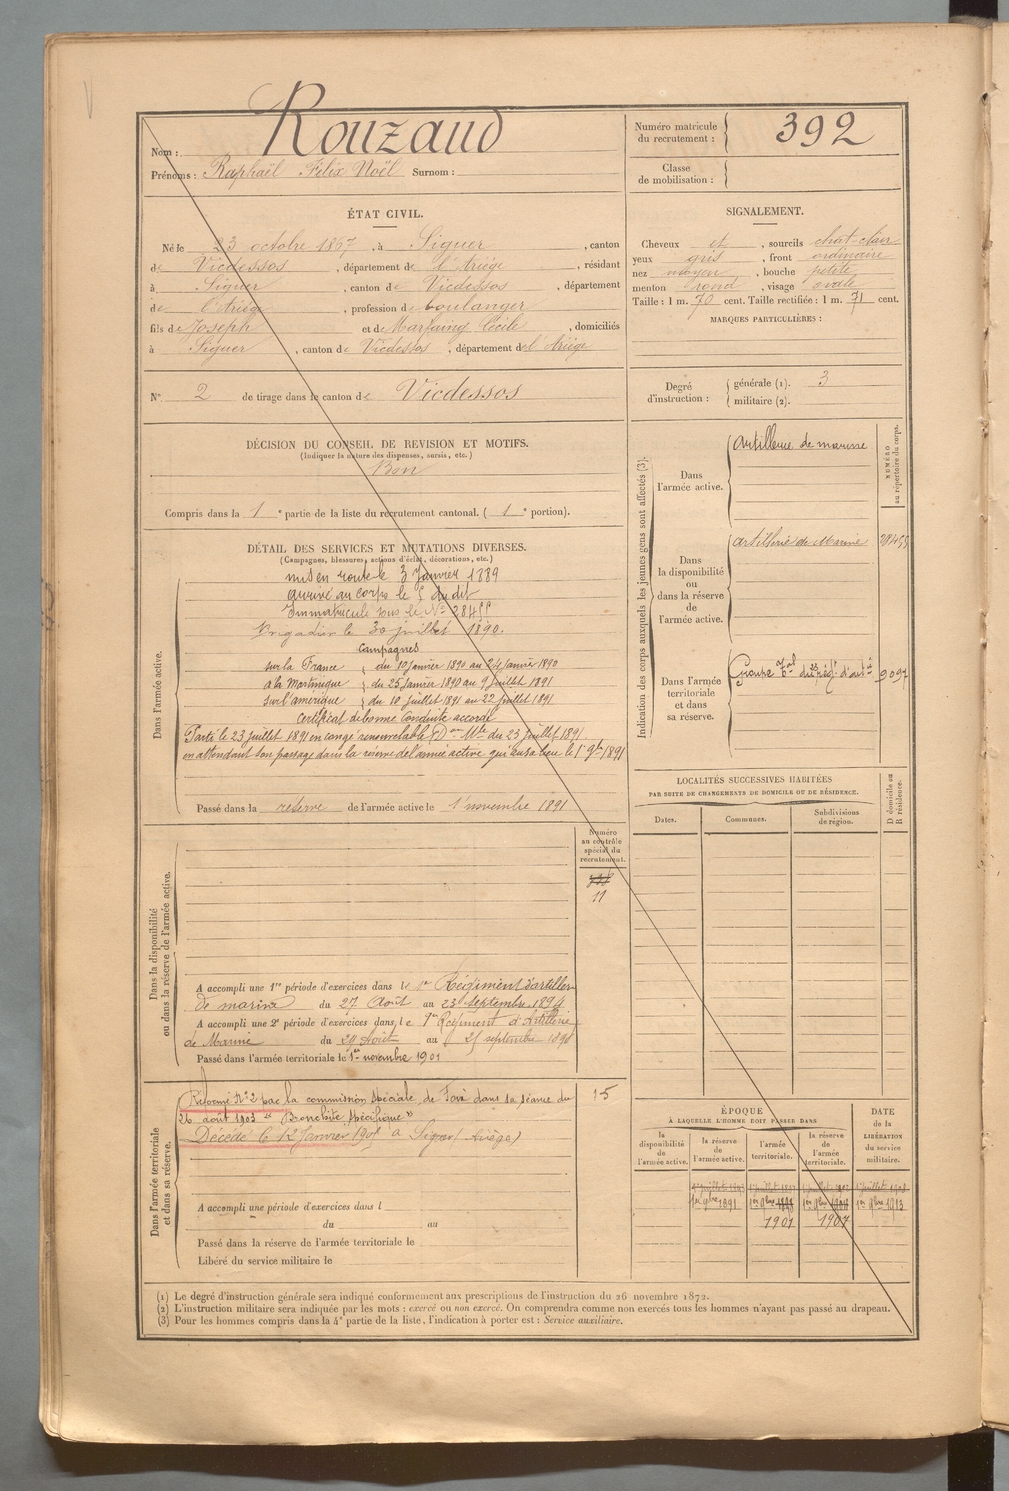 Nom : Rouzaud
Prénoms : Raphaël Félix Noël Surnom :
Numéro matricule du recrutement : 392
Classe de mobilisation :
ÉTAT CIVIL.
Né le 23 octobre 1867, à Siguer, canton
de Vicdessos, département de l'Ariège, résidant
à Siguer, canton de Vicdessos, département
de l'Ariège, profession de boulanger
fils de Joseph et de Marfaing Cécile, domiciliés
à Siguer, canton de Vicdessos, département de l'Ariège
N° 2 de tirage dans le canton de Vicdessos
SIGNALEMENT.
Cheveux et, sourcils chat-clair
yeux gris, front ordinaire
nez moyen, bouche petite
menton rond, visage ovale
Taille : 1 m. 70 cent. Taille rectifiée : 1 m. 71 cent.
MARQUES PARTICULIÈRES :
Degré d'instruction : générale (1). 3
militaire (2).
DÉCISION DU CONSEIL DE REVISION ET MOTIFS.
(Indiquer la nature des dispenses, sursis, etc.)
Bon
Compris dans la 1e partie de la liste du recrutement cantonal. (1e portion).
DÉTAIL DES SERVICES ET MUTATIONS DIVERSES.
(Campagnes, blessures, actions d'éclat, décorations, etc.)
Dans l'armée active.
mis en route le 3 Janvier 1889
arrivé au corps le 5 dudit
Immatriculé sous le N° 28455
Brigadier le 30 juillet 1890.
Campagnes
sur la France du 10 Janvier 1890 au 24 Janvier 1890
à la Martinique du 25 Janvier 1890 au 9 Juillet 1891
sur l'amérique du 10 juillet 1891 au 22 Juillet 1891
Certificat de bonne Conduite accordé
Parti le 23 juillet 1891 en congé renouvelable (Don Mle du 23 Juillet 1891
en attendant son passage dans la réserve de l'armée active qui aura lieu le 1er 9bre 1891
Passé dans la réserve de l'armée active le 1 novembre 1891
Indication des corps auxquels les jeunes gens sont affectés (3).
NUMÉRO au répertoire du corps.
Dans l'armée active. artillerie de marine
Dans la disponibilité ou dans la réserve de l'armée active. artillerie de Marine 28455
Dans l'armée territoriale et dans sa réserve. 9097
LOCALITÉS SUCCESSIVES HABITÉES
PAR SUITE DE CHANGEMENTS DE DOMICILE OU DE RÉSIDENCE.
Dates. Communes. Subdivisions de région. D domicile ou R résidence.
Dans la disponibilité ou dans la réserve de l'armée active.
Numéro au contrôle spécial du recrutement.
11
A accompli une 1re période d'exercices dans le 1er Régiment d'artillerie
de marine du 27 Août au 23 Septembre 1894
A accompli une 2e période d'exercices dans le 1er Régiment d'Artillerie
de Marine du 29 Août au 25 septembre 1898
Passé dans l'armée territoriale le 1er novembre 1901
Dans l'armée territoriale et dans sa réserve.
Réformé N° 2 par la commission spéciale de Foix dans sa séance du
26 août 1903 "Bronchite spécifique"
15
Décédé le 12 Janvier à Siguer (Ariège)
A accompli une période d'exercices dans l
du au
Passé dans la réserve de l'armée territoriale le
Libéré du service militaire le
ÉPOQUE
À LAQUELLE L'HOMME DOIT PASSER DANS
la disponibilité de l'armée active. la réserve de l'armée active. l'armée territoriale. la réserve de l'armée territoriale.
DATE de la LIBÉRATION du service militaire.
1er 9bre 1891 1er 9bre 1898 1er 9bre 1er 9bre 1913
1901 1907
(1) Le degré d'instruction générale sera indiqué conformément aux prescriptions de l'instruction du 26 novembre 1872.
(2) L'instruction militaire sera indiquée par les mots : exercé ou non exercé. On comprendra comme non exercés tous les hommes n'ayant pas passé au drapeau.
(3) Pour les hommes compris dans la 4e partie de la liste, l'indication à porter est : Service auxiliaire.